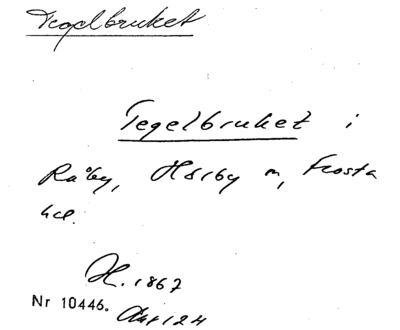 Tegelbruket
Tegelbruket i
Råby, Hörby m, Frosta
hd.
H. 1867
Nr 10446.